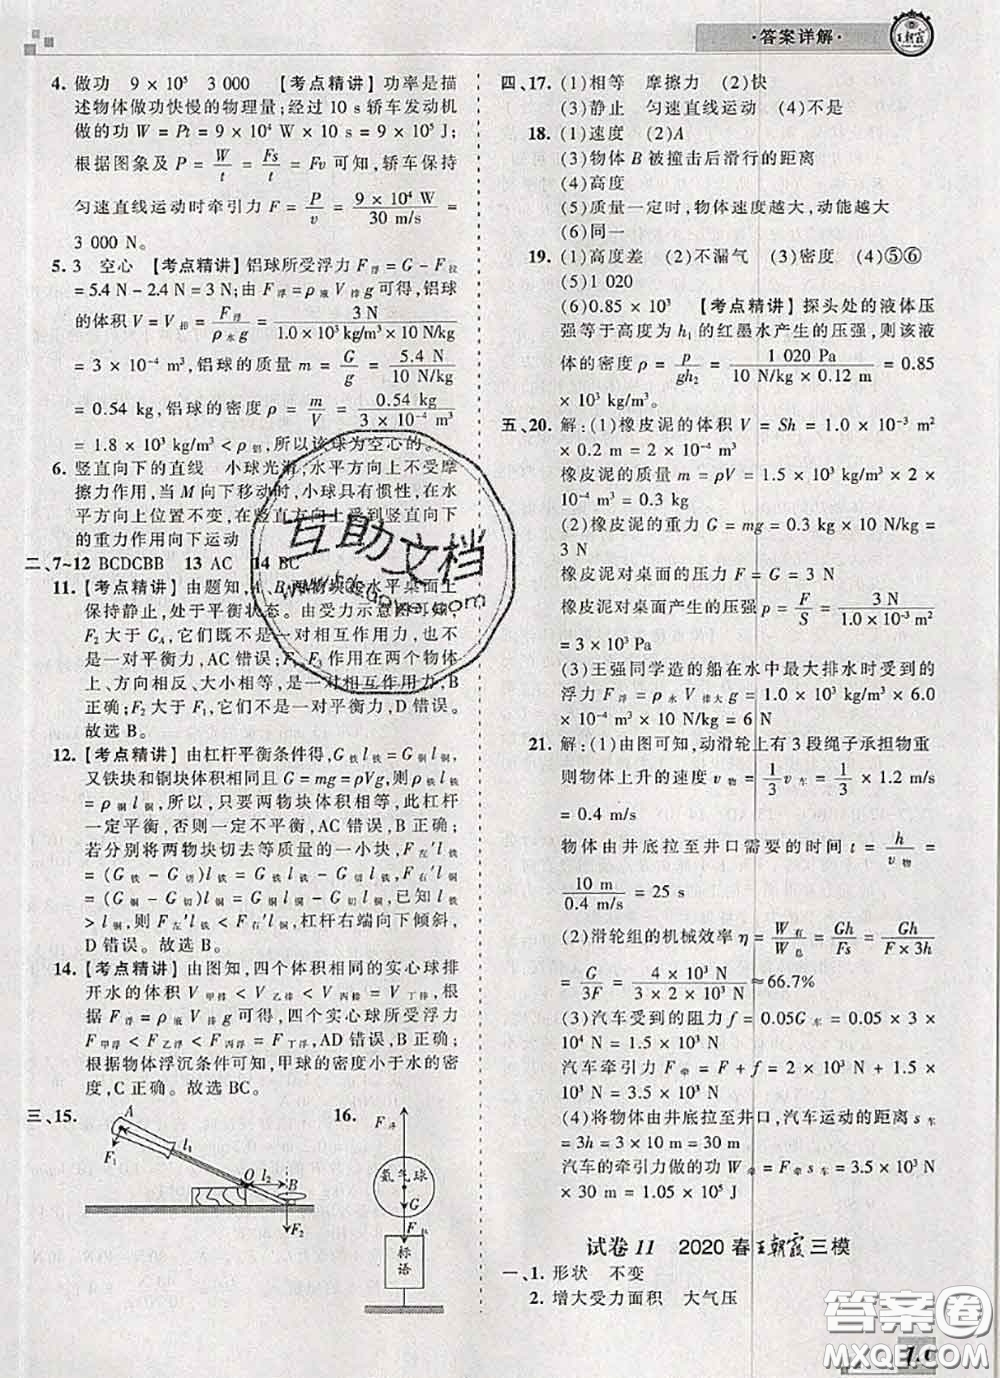 ·答案详解·
王朝霞
4. 做功 9 × 10⁵ 3 000 【考点精讲】功率是描
述物体做功快慢的物理量;经过 10 s 轿车发动机
做的功 W = Pt = 9 × 10⁴ W × 10 s = 9 × 10⁵ J;
根据图象及 P = W/t = Fs/t = Fv 可知,轿车保持
匀速直线运动时牵引力 F = P/v = 9 × 10⁴ W/30 m/s =
3 000 N。
5. 3 空心 【考点精讲】铝球所受浮力 F浮 = G − F拉
= 5.4 N − 2.4 N = 3 N;由 F浮 = ρ液 V排 g 可得,铝球
的体积 V = V排 = F浮/ρ水g = 3 N/1.0 × 10³ kg/m³ × 10 N/kg
= 3 × 10⁻⁴ m³,铝球的质量 m = G/g = 5.4 N/10 N/kg
= 0.54 kg,铝球的密度 ρ = m/V = 0.54 kg/3 × 10⁻⁴ m³
= 1.8 × 10³ kg/m³ < ρ铝,所以该球为空心的。
6. 竖直向下的直线 小球光滑;水平方向上不受摩
擦力作用,当 M 向下移动时,小球具有惯性,在水
平方向上位置不变,在竖直方向上受到竖直向下
的重力作用向下运动
二、7~12 BCDCBB 13 AC 14 BC
11. 【考点精讲】由题知,A、B 两物块在水平桌面上
保持静止,处于平衡状态。由受力示意图可知,
F₂ 大于 G_A,它们既不是一对相互作用力,也不是
一对平衡力,AC 错误;F₁、F₃ 作用在两个物体
上、方向相反、大小相等,是一对相互作用力,B
正确;F₂ 大于 F₁,它们不是一对平衡力,D 错误。
故选 B。
12. 【考点精讲】由杠杆平衡条件得,G铁 l铁 = G铜 l铜,
又铁块和铜块体积相同且 G = mg = ρVg,则 ρ铁 l铁
= ρ铜 l铜,所以,只要两物块体积相同,此杠杆
一定平衡,否则一定不平衡,AC 错误,B 正确;
若分别将两物块切去等质量的一小块,F左′l铁
= (G铁 − G切)l铁 = G铁l铁 − G切l铁,F右′l铜
= (G铜 − G切)l铜 = G铜l铜 − G切l铜,已知 l铁
> l铜,则 F左′l铁 < F右′l铜,杠杆右端向下倾斜,
D 错误。故选 B。
14. 【考点精讲】由图知,四个体积相同的实心球排
开水的体积 V甲排 < V乙排 < V丙排 = V丁排,根
据 F浮 = ρ液 V排 g 可得,四个实心球所受浮力
F甲浮 < F乙浮 < F丙浮 = F丁浮,AD 错误,B 正确;
根据物体浮沉条件可知,甲球的密度小于水的密
度,C 正确。故选 BC。
三、15.
A
F₁
l₁
O
l₂
B
F₂
16.
F浮
氦气球
G
F拉
标语
四、17. (1)相等 摩擦力 (2)快
(3)静止 匀速直线运动 (4)不是
18. (1)速度 (2)A
(3)物体 B 被撞击后滑行的距离
(4)高度
(5)质量一定时,物体速度越大,动能越大
(6)同一
19. (1)高度差 (2)不漏气 (3)相平 (4)⑤⑥
(5)1 020
(6)0.85 × 10³ 【考点精讲】探头处的液体压
强等于高度为 h₁ 的红墨水产生的压强,则该液
体的密度 ρ = p/gh₂ = 1 020 Pa/10 N/kg × 0.12 m = 0.85
× 10³ kg/m³。
五、20. 解:(1)橡皮泥的体积 V = Sh = 1.0 × 10⁻³ m²
× 0.2 m = 2 × 10⁻⁴ m³
橡皮泥的质量 m = ρV = 1.5 × 10³ kg/m³ × 2 ×
10⁻⁴ m³ = 0.3 kg
(2)橡皮泥的重力 G = mg = 0.3 kg × 10 N/kg
= 3 N
橡皮泥对桌面的压力 F = G = 3 N
橡皮泥对桌面产生的压强 p = F/S = 3 N/1.0 × 10⁻³ m²
= 3 × 10³ Pa
(3)王强同学造的船在水中最大排水时受到的
浮力 F浮 = ρ水 V排大 g = 1.0 × 10³ kg/m³ × 6.0
× 10⁻⁴ m³ × 10 N/kg = 6 N
21. 解:(1)由图可知,动滑轮上有 3 段绳子承担物重
则物体上升的速度 v物 = 1/3 v车 = 1/3 × 1.2 m/s
= 0.4 m/s
物体由井底拉至井口需要的时间 t = h/v物 =
10 m/0.4 m/s = 25 s
(2)滑轮组的机械效率 η = W有/W总 = Gh/Fs = Gh/F × 3h
= G/3F = 4 × 10³ N/3 × 2 × 10³ N ≈ 66.7%
(3)汽车受到的阻力 f = 0.05G车 = 0.05 × 3 ×
10⁴ N = 1.5 × 10³ N
汽车牵引力 F牵 = f + F = 1.5 × 10³ N + 2 ×
10³ N = 3.5 × 10³ N
(4)将物体由井底拉至井口,汽车运动的距离 s车
= 3h = 3 × 10 m = 30 m
汽车的牵引力做的功 W牵 = F牵 s车 = 3.5 × 10³ N
× 30 m = 1.05 × 10⁵ J
试卷 11 2020 春王朝霞三模
一、1. 形状 不变
2. 增大受力面积 大气压
互助文档
答案圈
MXQE.COM